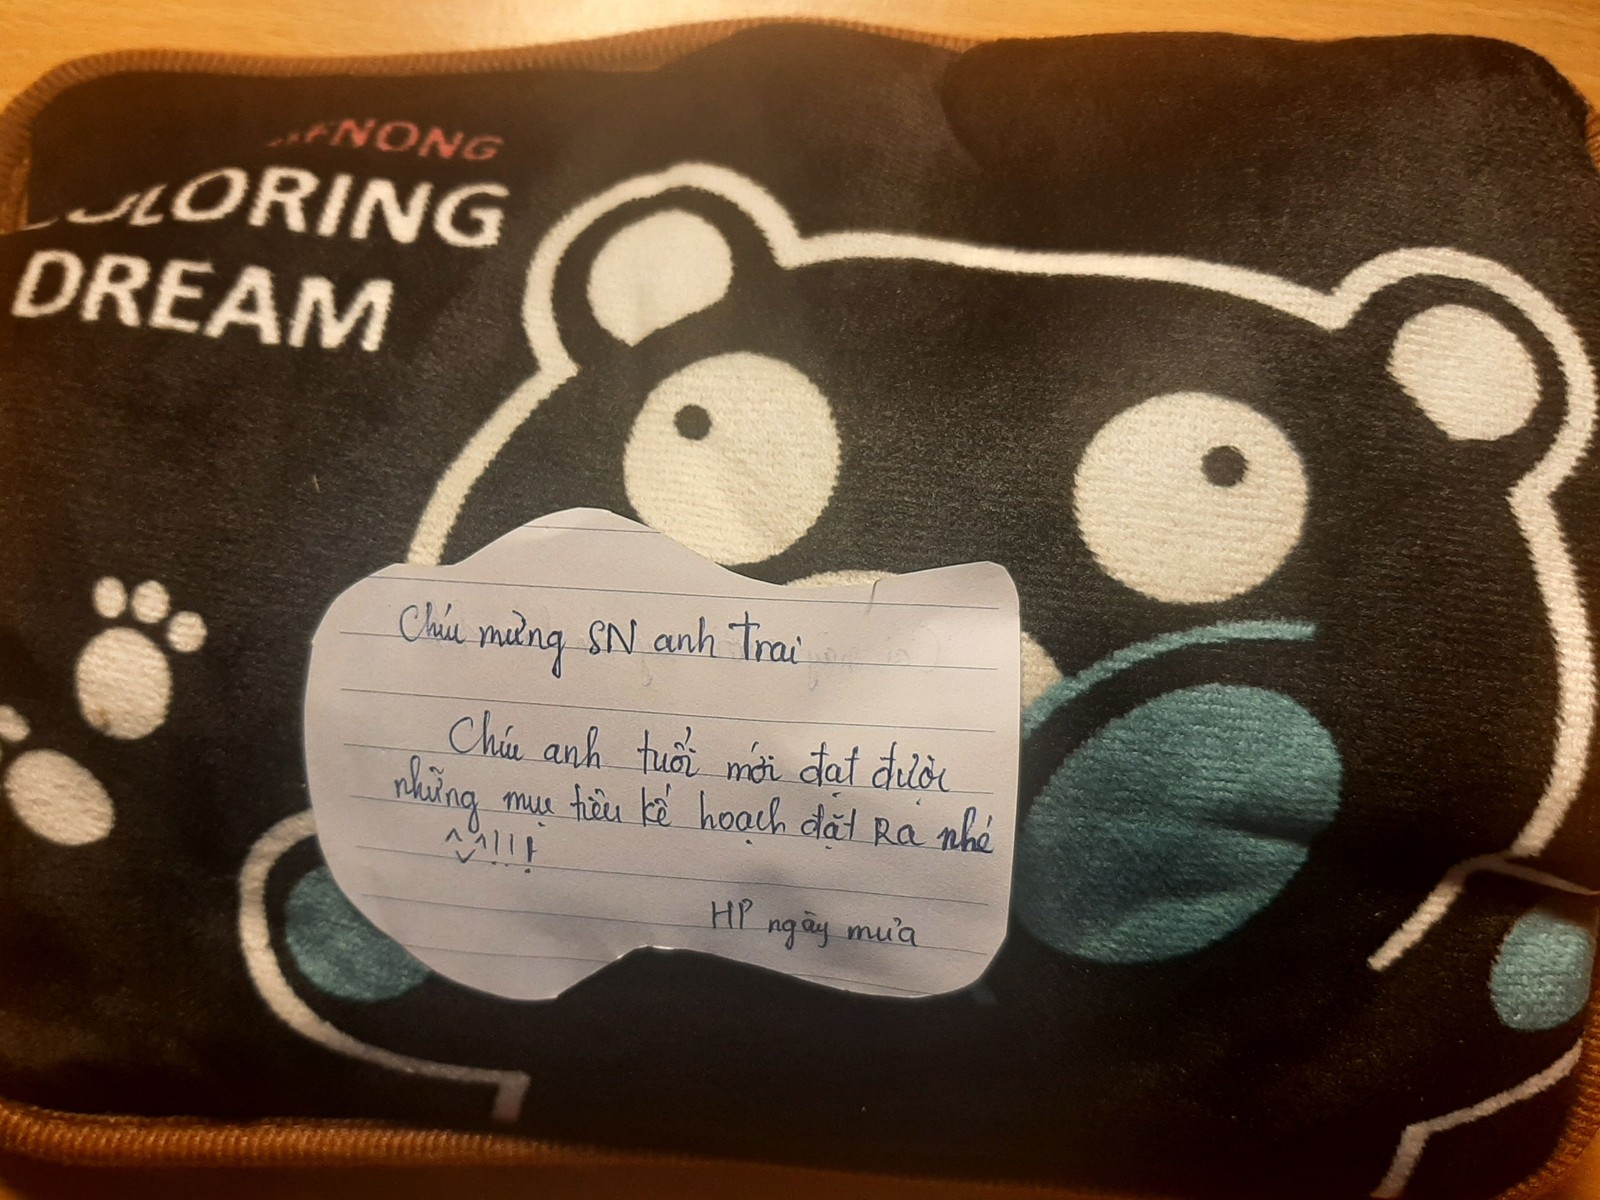 NONG
ORING
DREAM
Chúc mừng SN anh Trai
Chúc anh tuổi mới đạt được
những mục tiêu kế hoạch đặt Ra nhé
^_^!!!
HP ngày mưa